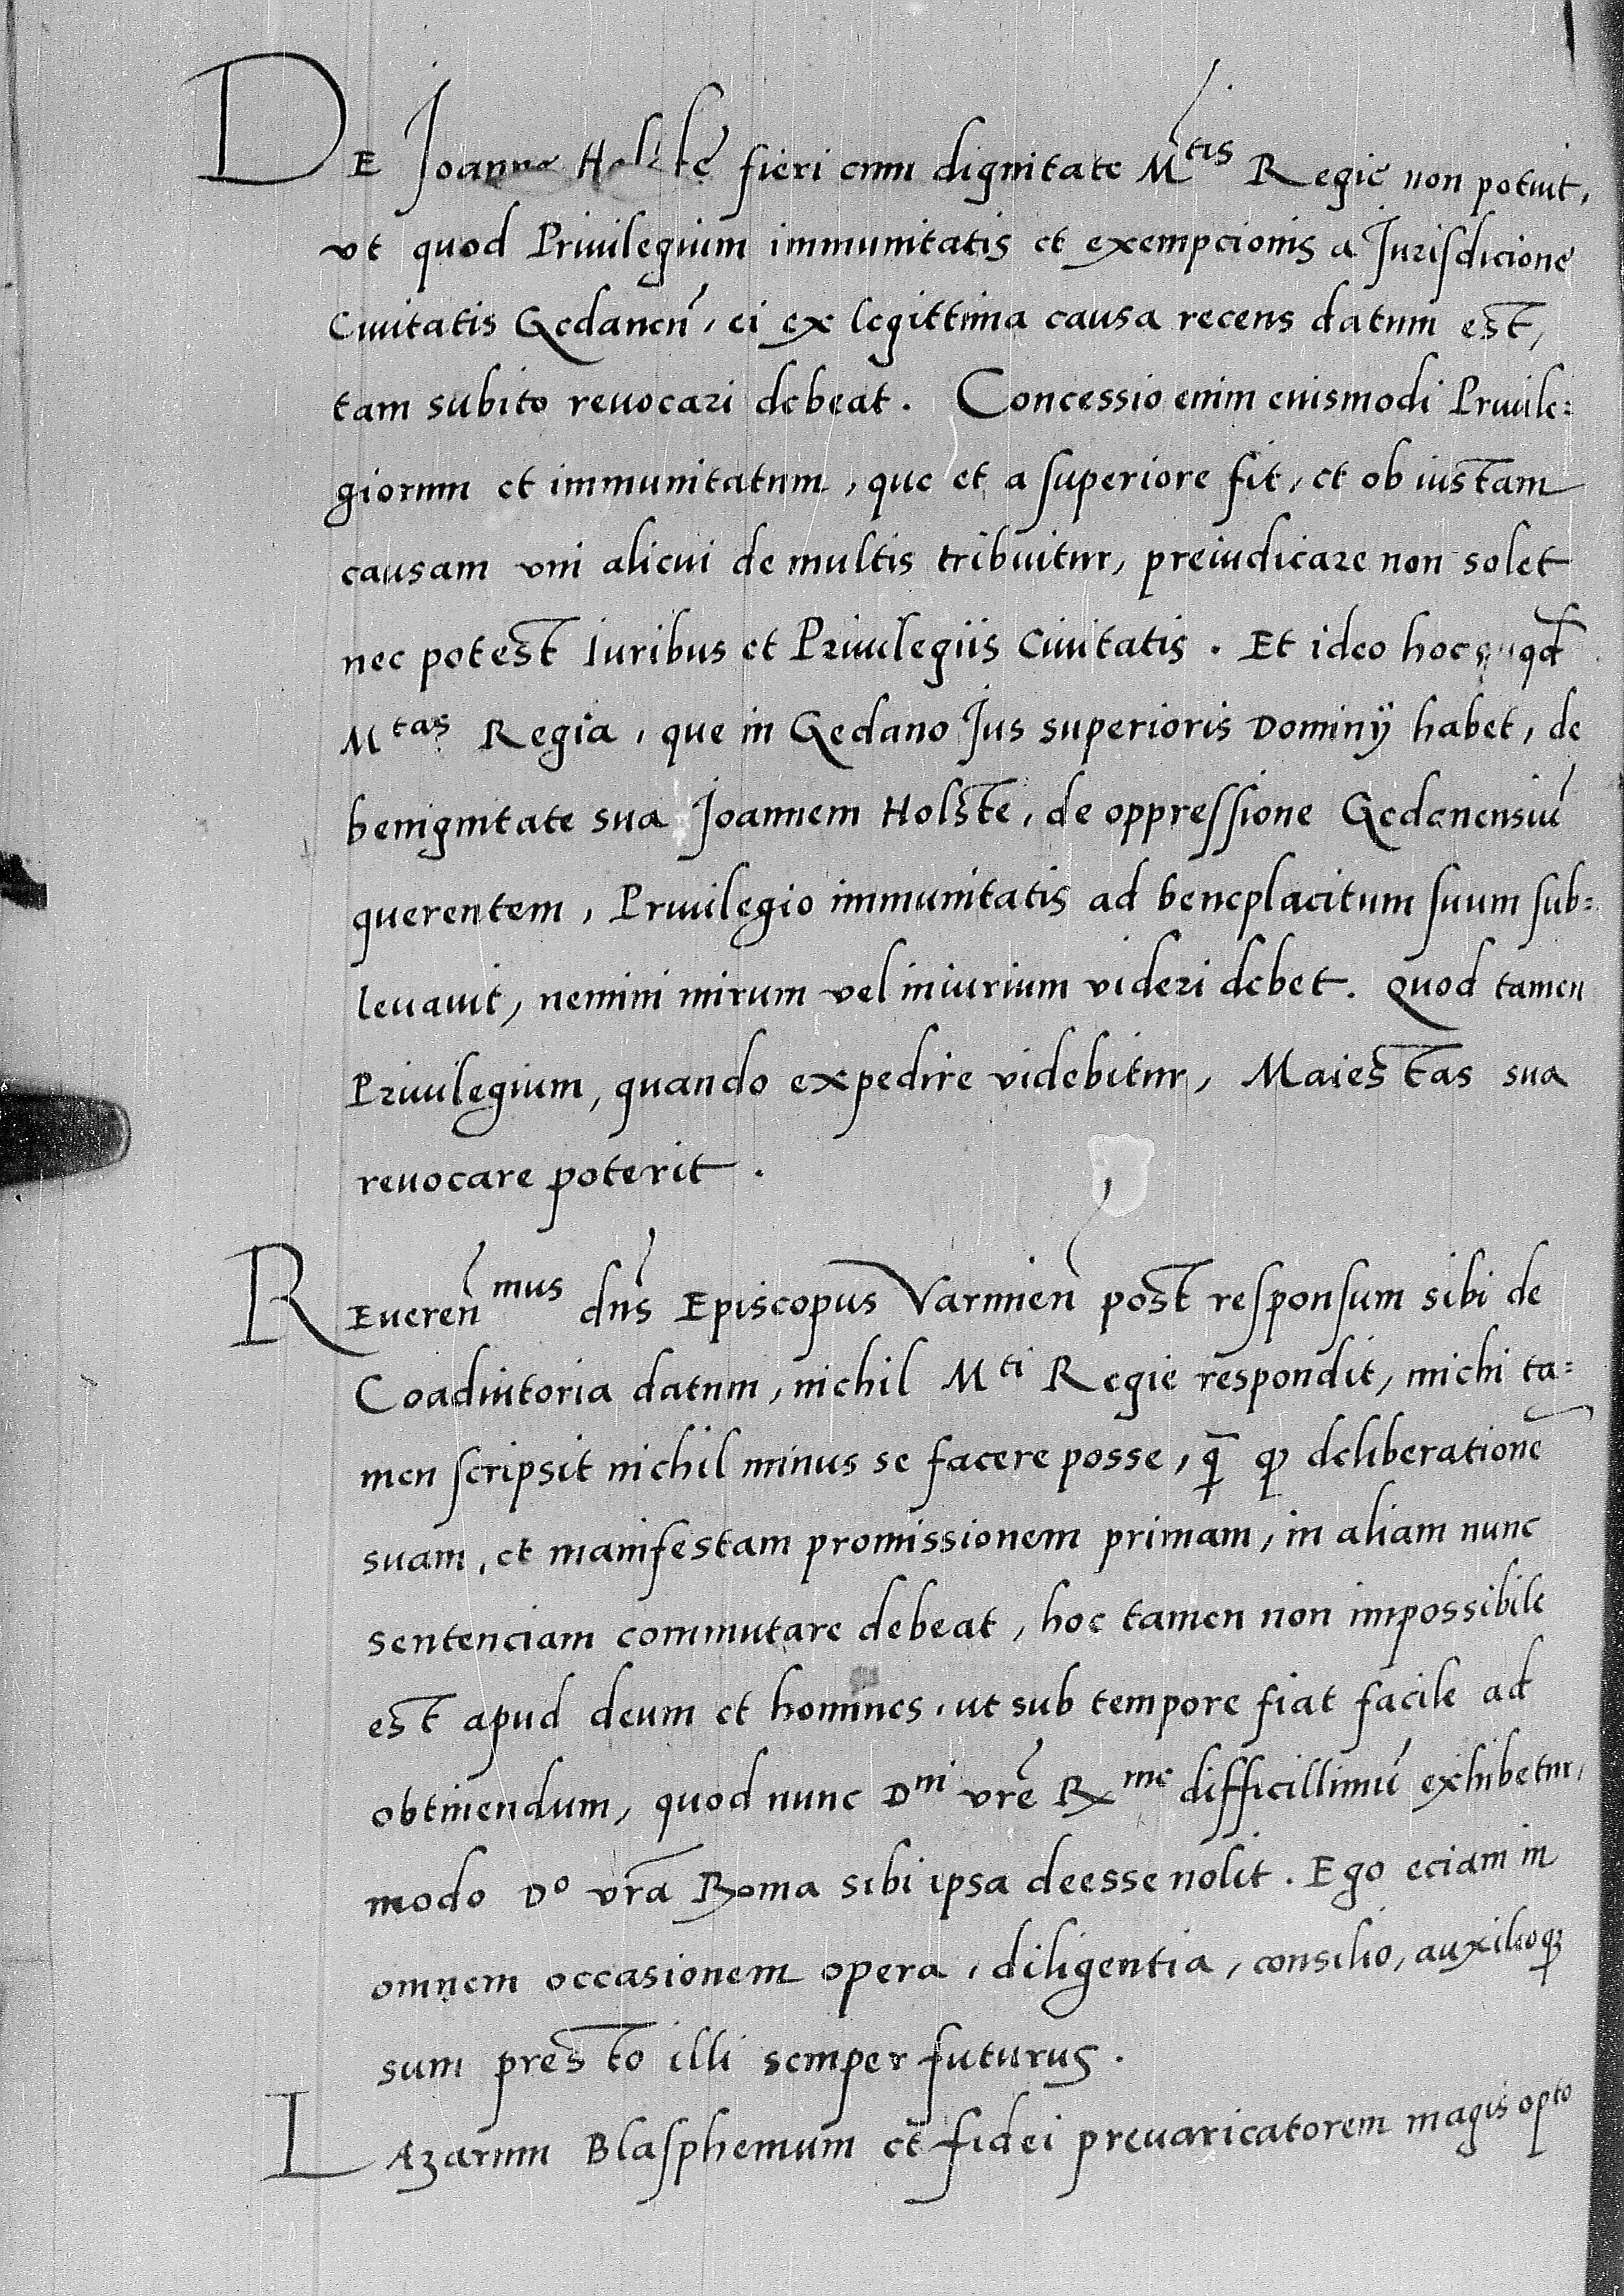 DE Joanne Holste fieri cum dignitate M^tis Regie non potuit,
vt quod Priuilegium immunitatis et exempcionis a Jurisdicione
Ciuitatis Gedaneñ, ei ex legittima causa recens datum est,
tam subito reuocari debeat. Concessio enim eiusmodi Priuile=
giorum et immunitatum, que et a superiore fit, et ob iustam
causam vni alicui de multis tribuitur, preiudicare non solet
nec potest Iuribus et Priuilegiis Ciuitatis. Et ideo hoc qđ
M^tas Regia, que in Gedano Jus superioris Dominÿ habet, de
benignitate sua Joannem Holste, de oppressione Gedanensiū
querentem, Priuilegio immunitatis ad beneplacitum suum sub=
leuauit, nemini mirum vel iniurium videri debet. Quod tamen
Priuilegium, quando expedire videbitur, Maiestas sua
reuocare poterit.
REuereñ^mus dñs Episcopus Varmieñ post responsum sibi de
Coadiutoria datum, nichil M^ti Regie respondit, michi ta=
men scripsit nichil minus se facere posse, q̄ ꝙ deliberationē
suam, et manifestam promissionem primam, in aliam nunc
sentenciam commutare debeat, hoc tamen non impossibile
est apud deum et homines, ut sub tempore fiat facile ad
obtinendum, quod nunc D^ni vrē R^me difficillimū exhibetur,
modo D^o vrā Roma sibi ipsa deesse nolit. Ego eciam in
omnem occasionem opera, diligentia, consilio, auxilioqꝫ
sum presto illi semper futurus.
LAzarum Blasphemum et fidei preuaricatorem magis opto